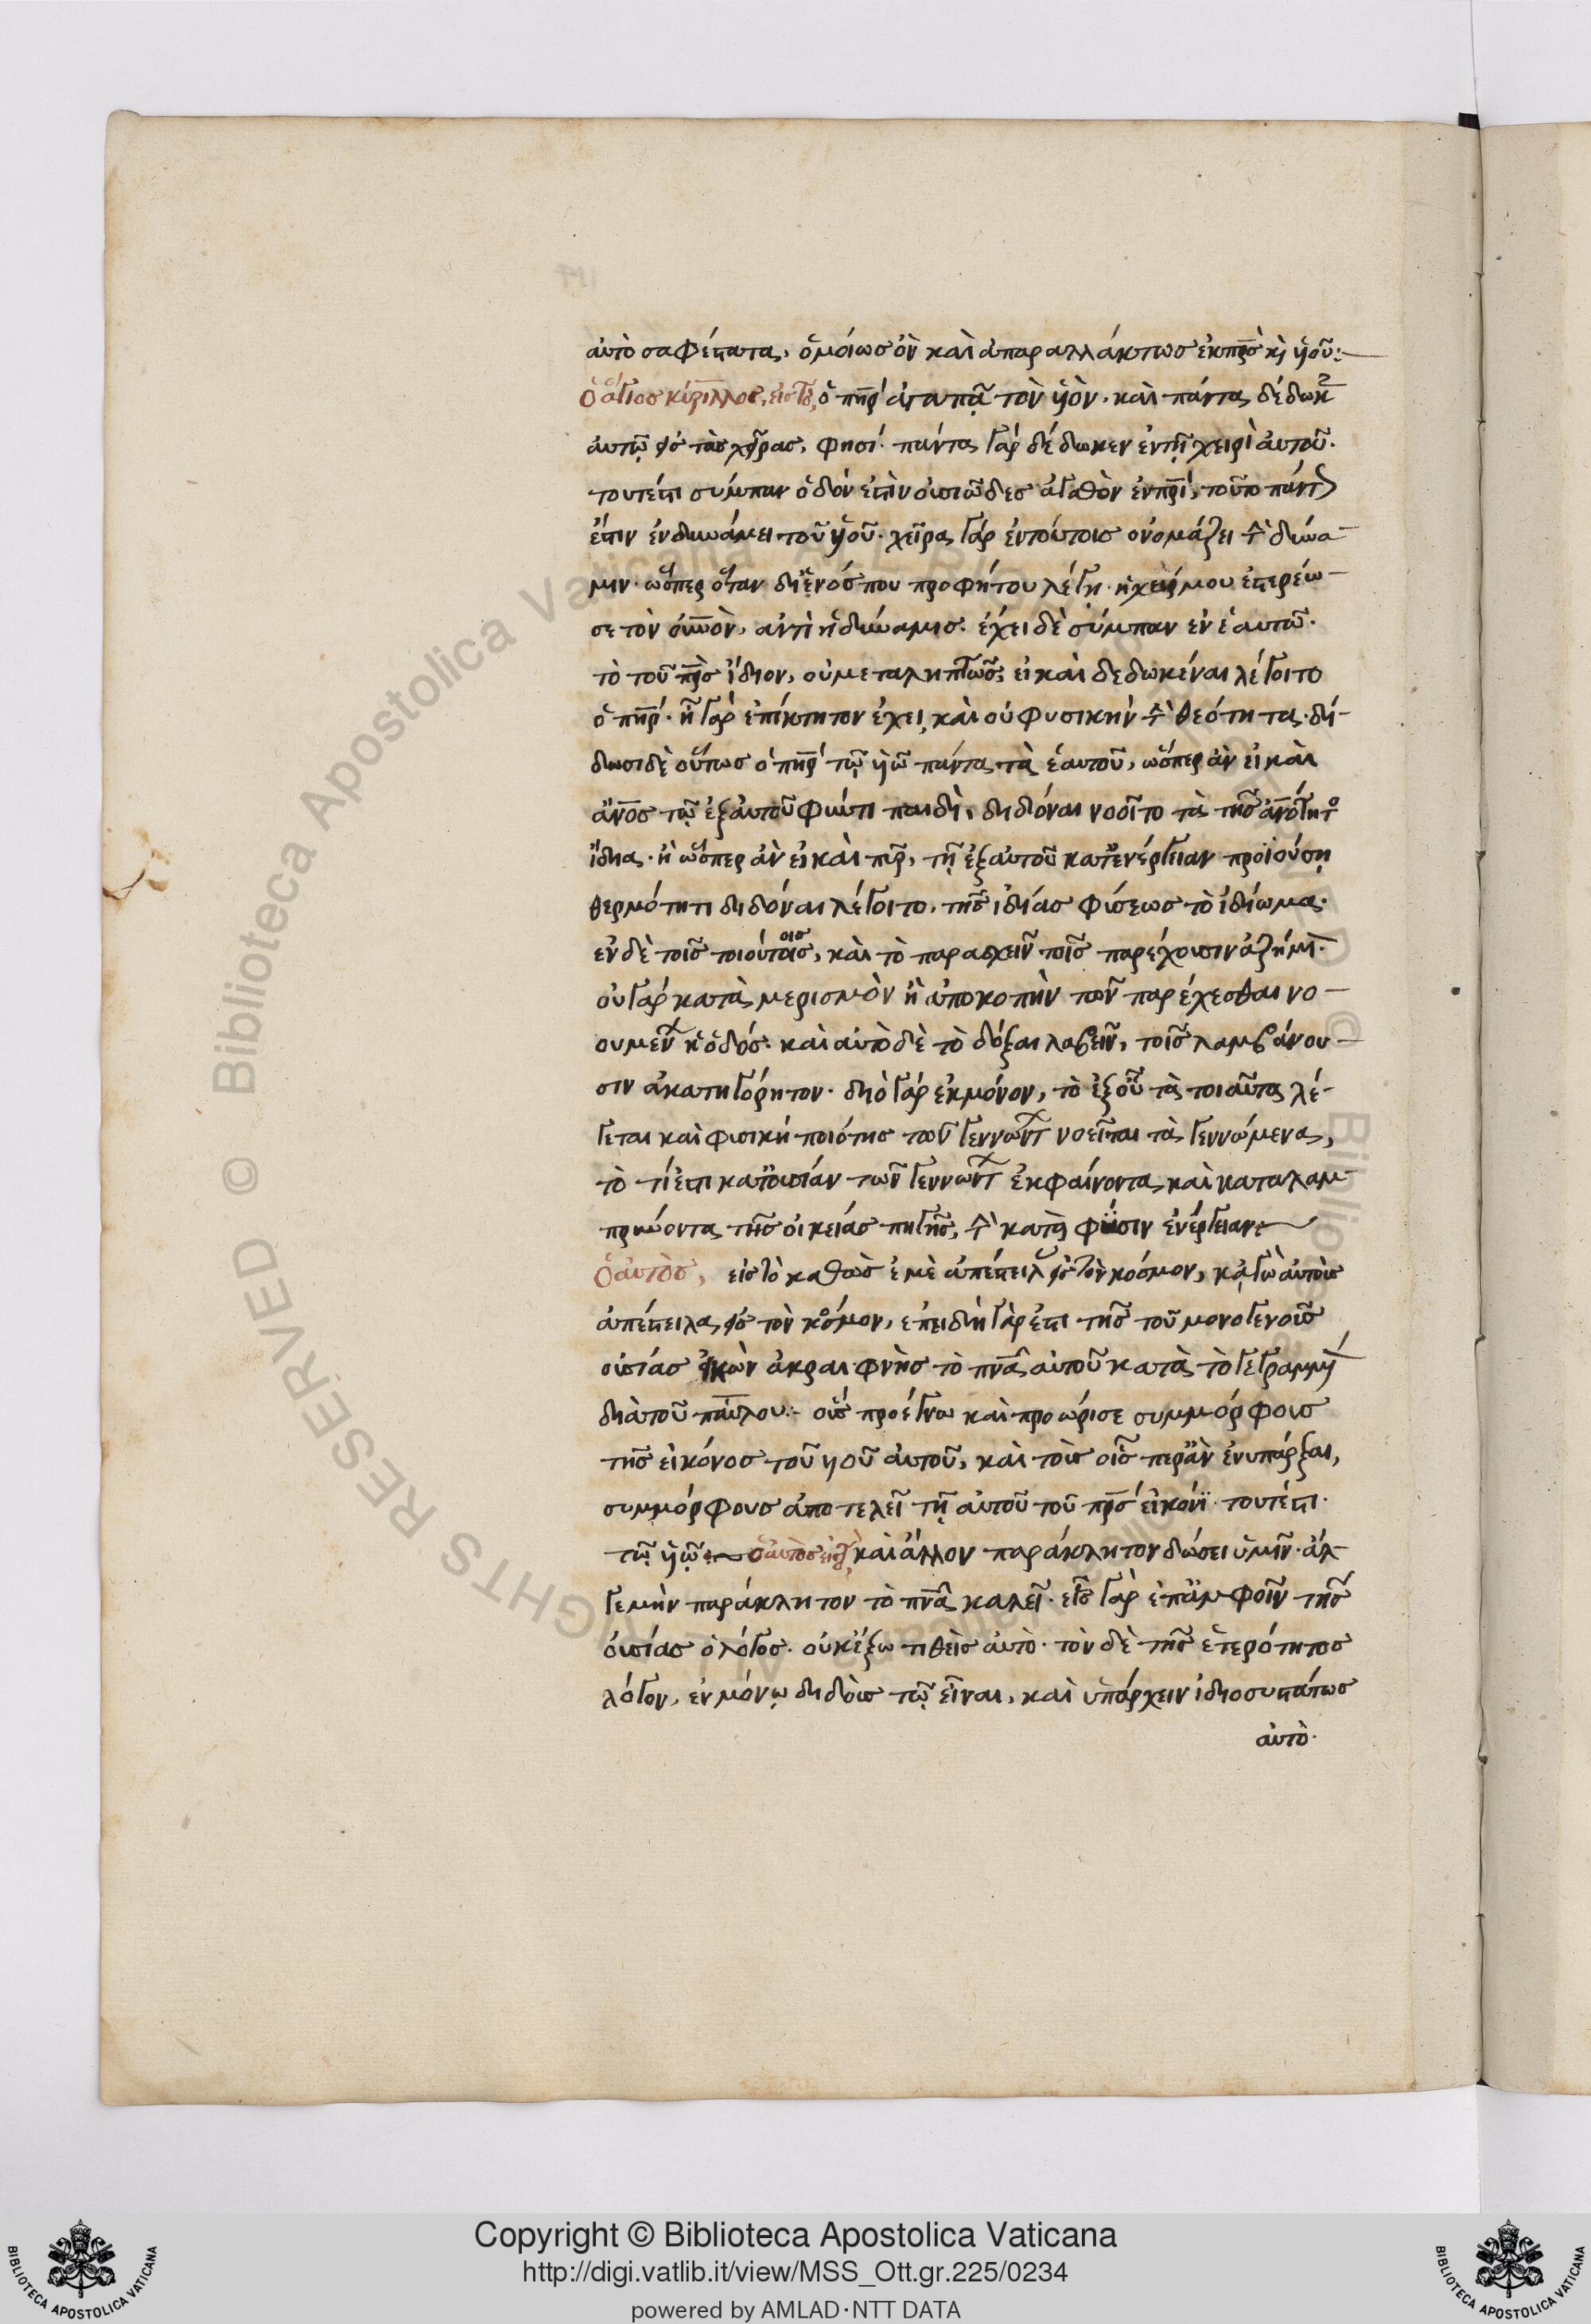 αὐτὸ σαφέστατα, ὁμοίως ὂν καὶ ἀπαραλλάκτως ἐκ πρσ κὶ ὑοῦ:
ὁ ἅγιος κύριλλος, εἰς τὸ, ὁ πηρ ἀγαπᾷ τὸν ὑὸν. καὶ πάντα δέδωκεν
αὐτῷ εἰς τὰς χεῖρας, φησί. πάντα γάρ δέδωκεν ἐν τῇ χειρὶ αὐτοῦ.
τουτέστι σύμπαν ὅ δόν ἐστὶν οὐσιῶδες ἀγαθὸν ἐν πρι, τοῦτο πάντως
ἔστιν ἐν δυνάμει τοῦ ὑοῦ. χεῖρα γάρ ἐν τούτοις ὀνομάζει τὴν δύνα
μιν. ὥσπερ ὅταν δι ἑνός που προφήτου λέγῃ. ἡ χείρ μου ἐστερέω
σε τὸν οὐνον, ἀντὶ ἡ δύναμις. ἔχει δὲ σύμπαν ἐν ἑαυτῶ.
τὸ τοῦ πρσ ἴδιον, οὐ μεταληπτῶς, εἰ καὶ δεδωκέναι λέγοιτο
ὁ πηρ. ἦ γάρ ἐπίκτητον ἔχει, καὶ οὐ φυσικήν τὴν θεότητα. δί
δωσι δὲ οὕτως ὁ πηρ τῷ ὑῶ πάντα τὰ ἑαυτοῦ, ὥσπερ ἂν εἰ καὶ
ἄνος τῷ ἐξ αὐτοῦ φύντι παιδὶ, διδόναι νοοῖτο τὰ τῆς ἀνότητος
ἴδια. ἢ ὥσπερ ἂν εἰ καὶ πῦρ, τῇ ἐξ αὐτοῦ κατ ἐνέργειαν προϊούσῃ
θερμότητι διδόναι λέγοιτο, τῆς ἰδίας φύσεως τὸ ἰδίωμα.
ἐν δὲ τοῖς τοιούτοις, καὶ τὸ παρασχεῖν τοῖς παρέχουσιν ἀζήμι.
οὐ γάρ κατὰ μερισμὸν ἢ ἀποκοπὴν τῶν παρέχεσθαι νο
ουμένων ἡ ὁδός. καὶ αὐτὸ δὲ τὸ δόξαι λαβεῖν, τοῖς λαμβάνου
σιν ἀκατηγόρητον. διὸ γάρ ἐκ μόνον, τὸ ἐξ οὗ τὰ τοιαῦτα λέ
γεται καὶ φυσική ποιότης τῶν γεννώντων νοεῖται τὰ γεννώμενα,
τὸ τί ἐστι κατ οὐσίαν τῶν γεννώντων ἐκφαίνοντα, καὶ καταλαμ
πρύνοντα τῆς οἰκείας πηγῆς, τὴν κατὰ φύσιν ἐνέργειαν
ὁ αὐτὸς, εἰς τὸ καθὼς ἐμὲ ἀπέστειλας εἰς τὸν κόσμον, κἀγὼ αὐτοὺς
ἀπέστειλα, εἰς τὸν κόσμον, ἐπειδὴ γὰρ ἔστι τῆς τοῦ μονογενοῦς
οὐσίας εἰκὼν ἀκραιφνὴς τὸ πνᾶ αὐτοῦ κατὰ τὸ γεγραμμένον
διὰ τοῦ παύλου: οὓς προέγνω καὶ προώρισε συμμόρφους
τῆς εἰκόνος τοῦ ὑοῦ αὐτοῦ, καὶ τοὺς οἷς περ ἂν ἐνυπάρξαι,
συμμόρφους ἀποτελεῖ τῇ αὐτοῦ τοῦ πρσ εἰκόνι. τουτέστι.
τῷ ὑῷ ὁ αὐτὸς εἰς τὸ, καὶ ἄλλον παράκλητον δώσει ὑμῖν. ἀλ
γε μὴν παράκλητον τὸ πνᾶ καλεῖ. εἷς γὰρ ἐπ ἀμφοῖν τῆς
οὐσίας ὁ λόγος. οὐκ ἔξω τιθεὶς αὐτὸ. τὸν δὲ τῆς ἑτερότητος
λόγον, ἐν μόνῳ διδοὺς τῷ εἶναι, καὶ ὑπάρχειν ἰδιοσυστάτως
αὐτὸ.
Copyright © Biblioteca Apostolica Vaticana
http://digi.vatlib.it/view/MSS_Ott.gr.225/0234
powered by AMLAD·NTT DATA